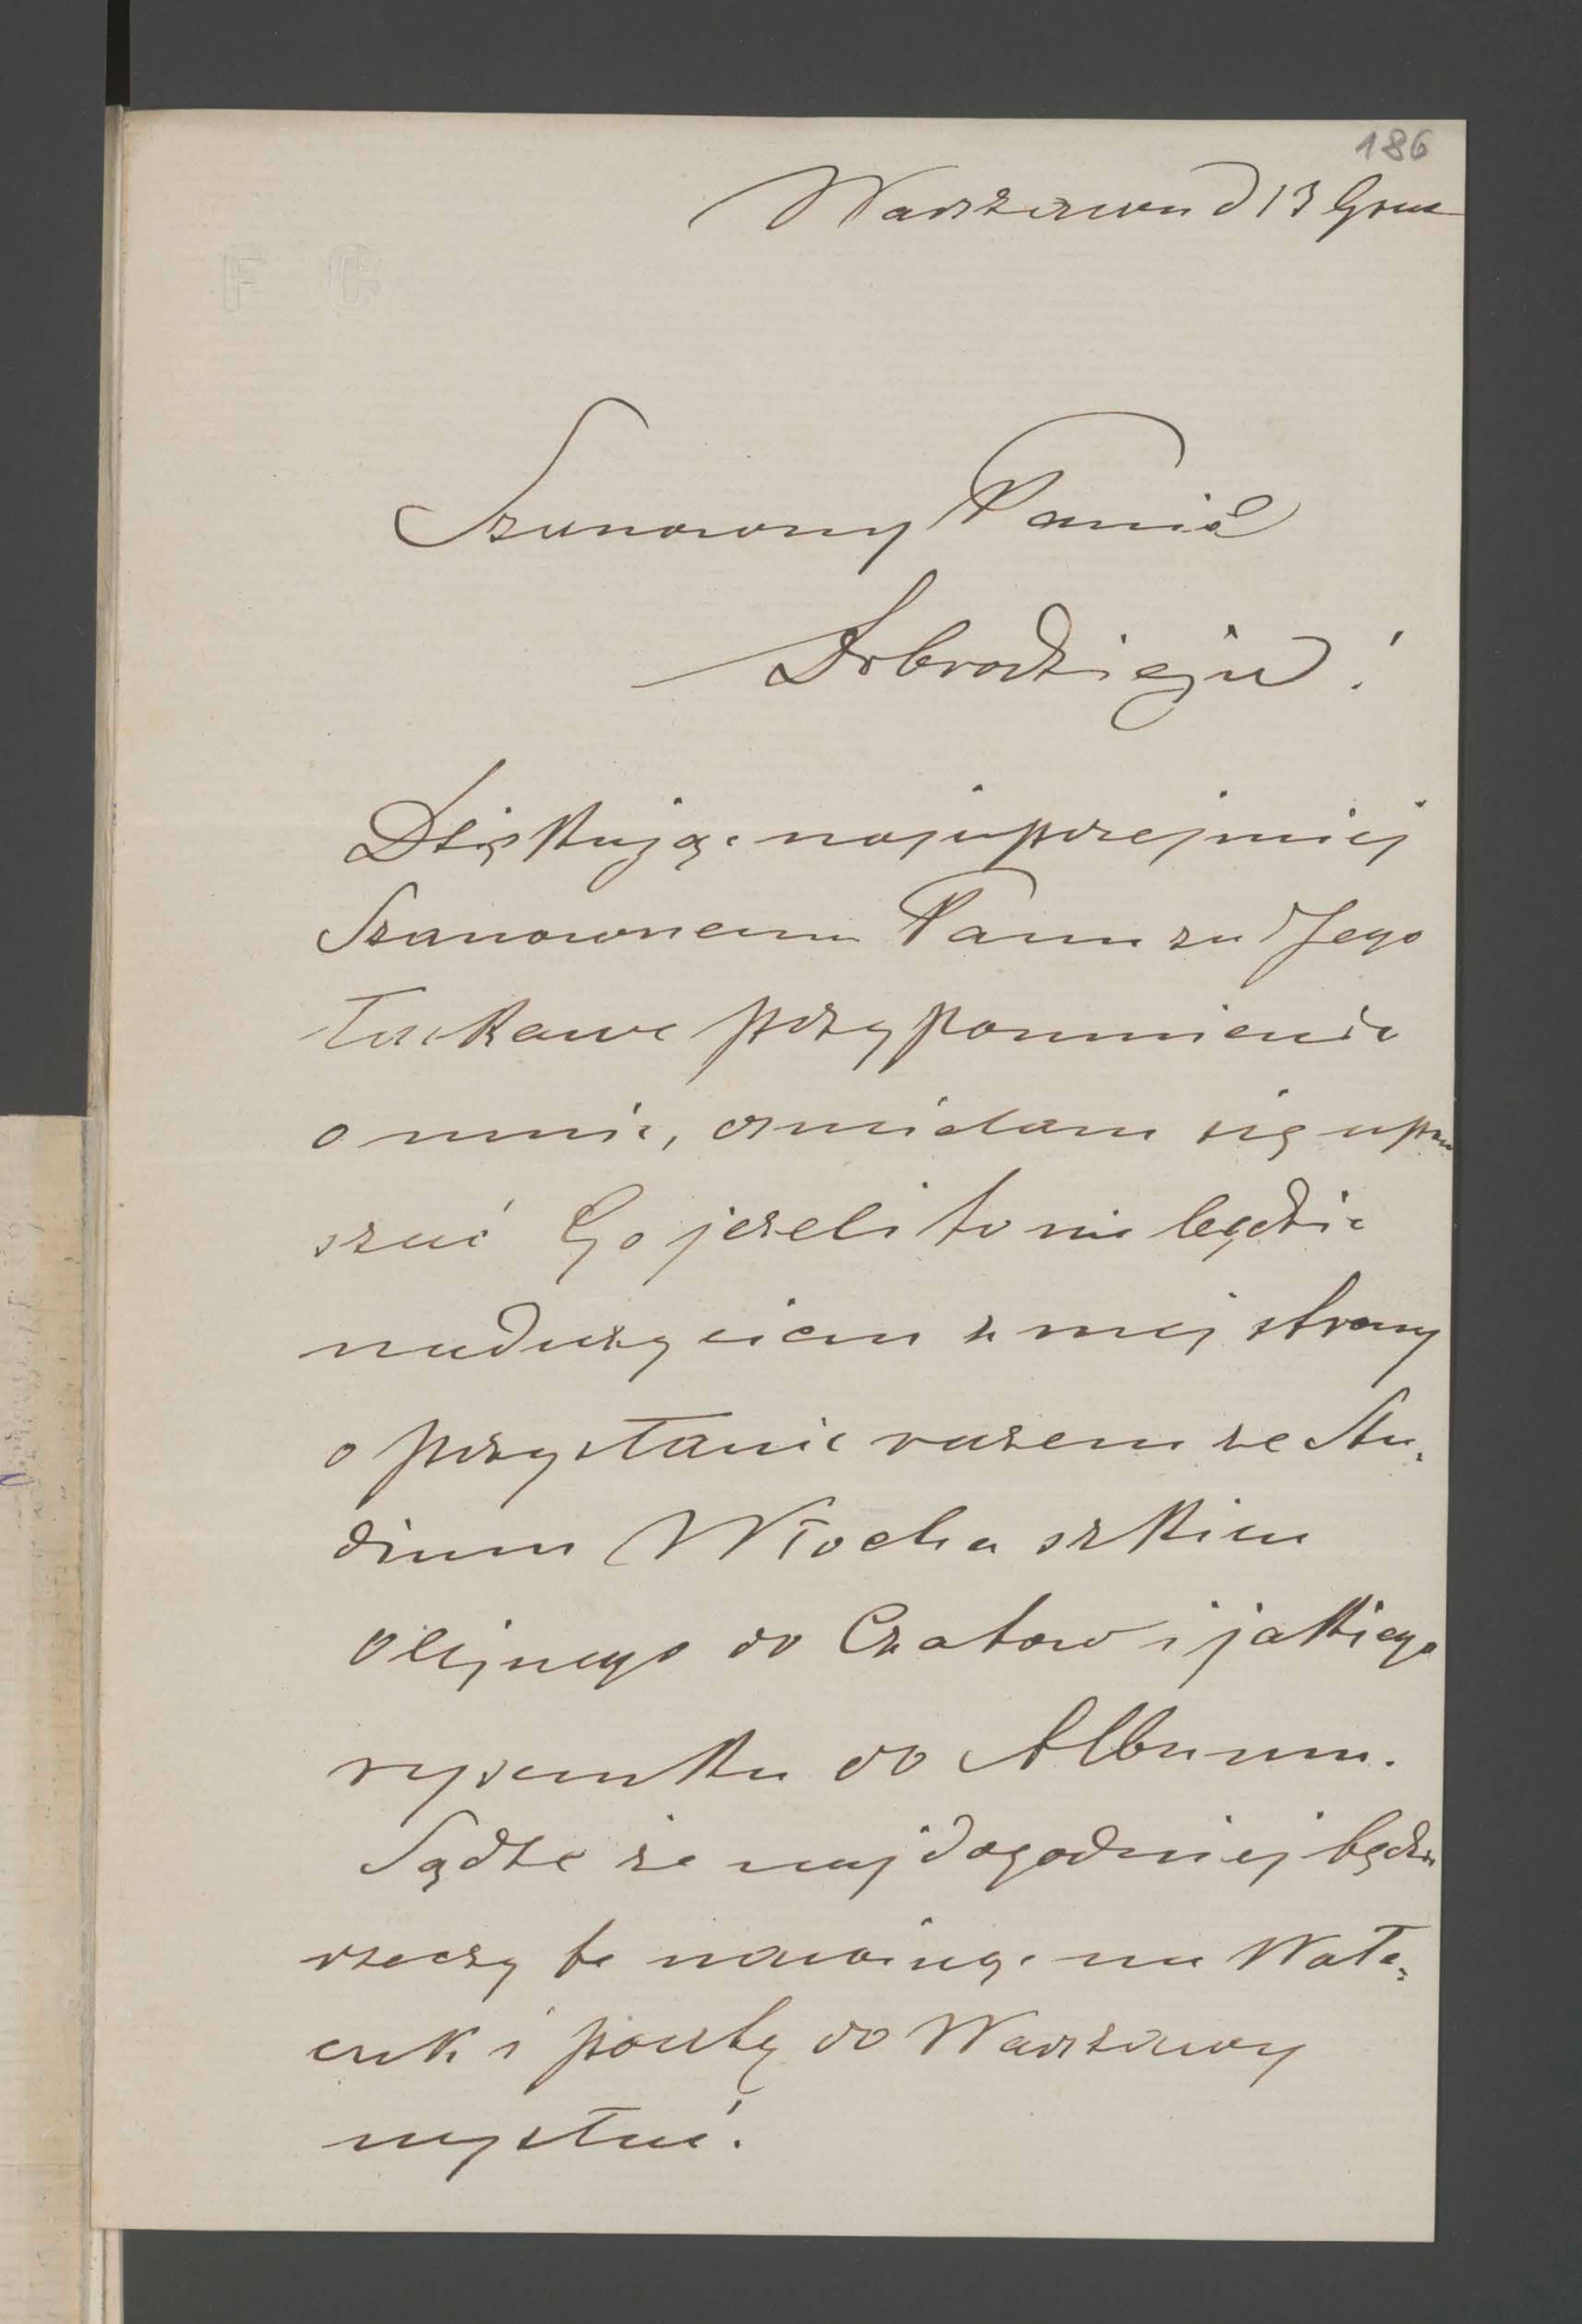 186
Warszawa d 13 Gru
F G
Szanowny Panie
Dobrodzieju!
Dziękując najuprzejmiej
Szanownemu Panu za Jego
łaskawe przypomnienie
o mnie, ośmielam się upra
szać Go jeżeli to nie będzie
nadużyciem z mej strony
o przysłanie razem ze Stu-
dium Włocha szkicu
olejnego do Czatów i jakiego
rysunku do Albumu.
Sądzę że najdogodniej będzie
rzeczy te nawinąć na Wałe-
czek i pocztą do Warszawy
wysłać.